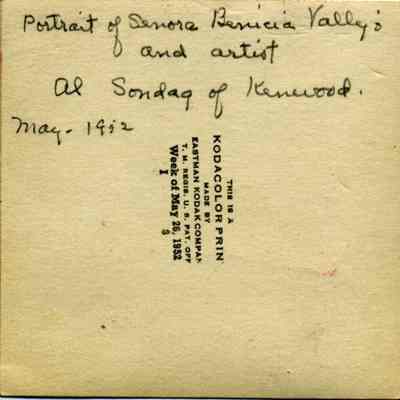 Portrait of Senora Benicia Vallejo
and artist
Al Sondag of Kenwood.
May - 1952
THIS IS A
KODACOLOR PRIN
MADE BY
EASTMAN KODAK COMPAN
T. M. REGIS. U. S. PAT. OFF
Week of May 26, 1952
I 3